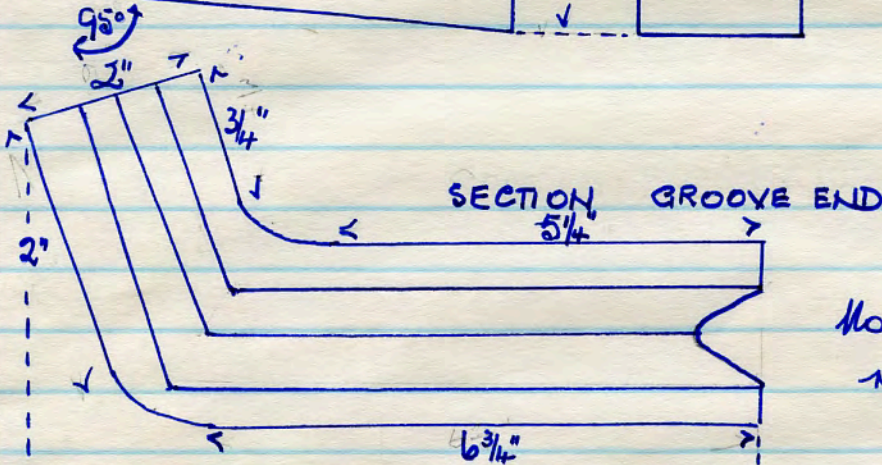 95°
2"
3/4"
SECTION GROOVE END
5 1/4"
2"
6 3/4"